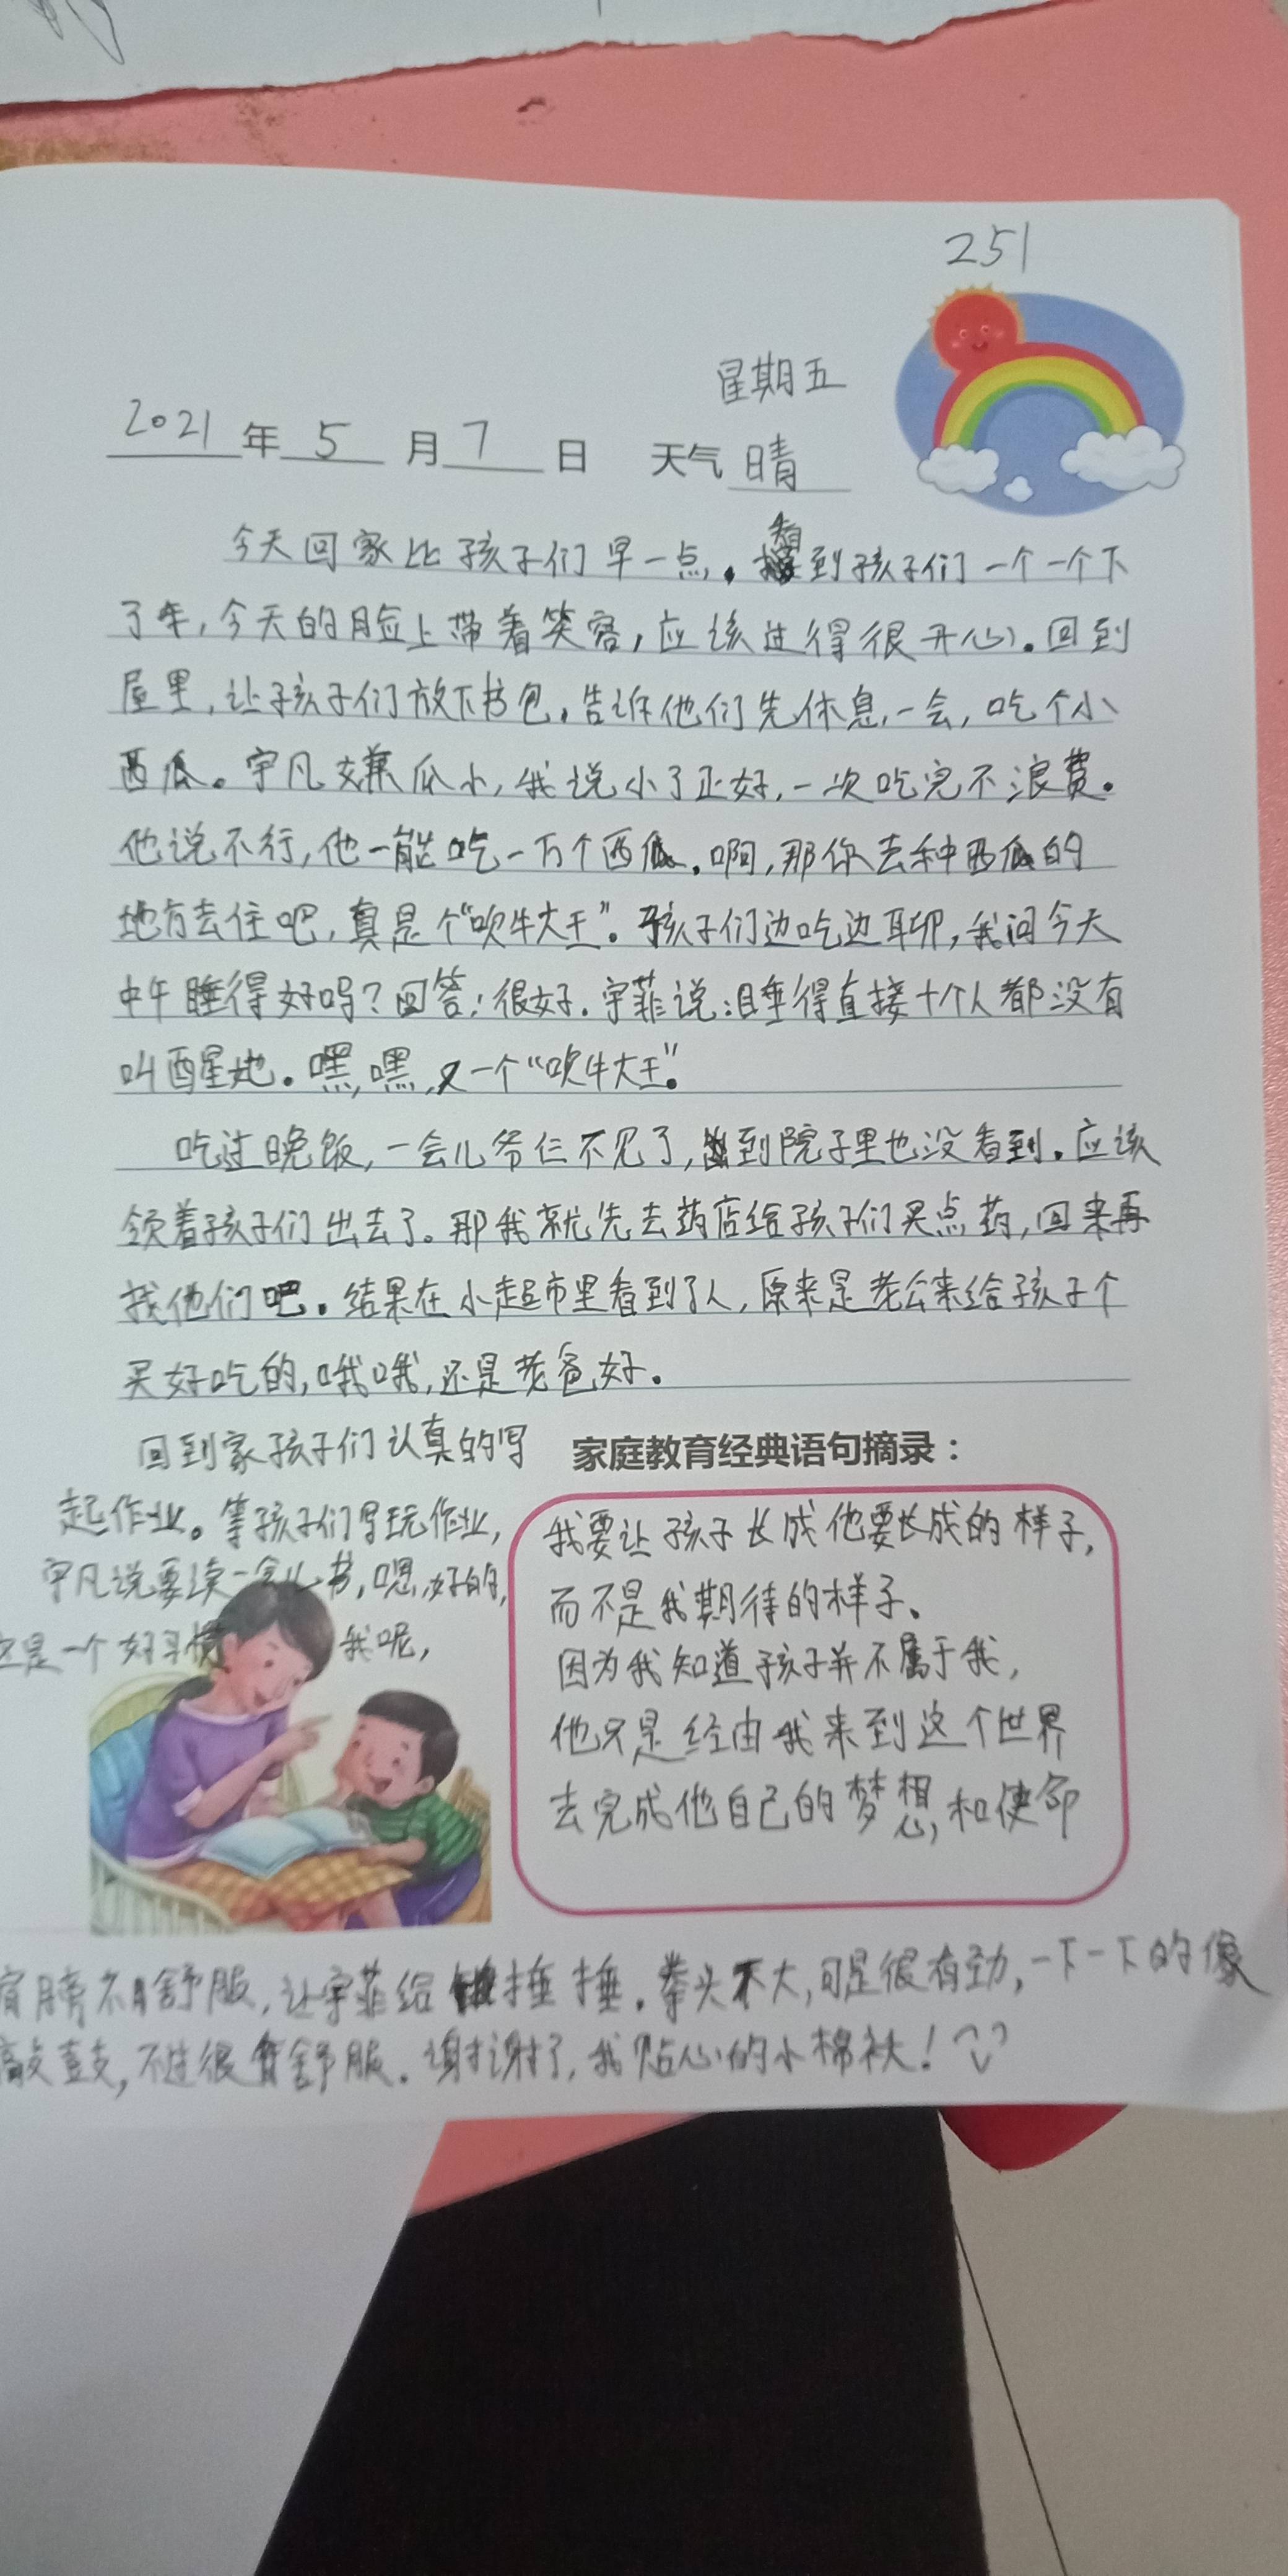 251
星期五
2021年5月7日 天气晴
今天回家比孩子们早一点。看到孩子们一个一个下
了车,今天的脸上带着笑容,应该过得很开心。回到
屋里,让孩子们放下书包。告诉他们先休息一会,吃个小
西瓜。宇凡嫌瓜小,我说小了正好,一次吃完不浪费。
他说不行,他一能吃一万个西瓜。啊,那你去种西瓜的
地方去住吧,真是个“吹牛大王”。孩子们边吃边聊,我问今天
中午睡得好吗?回答:很好。宇菲说:睡得直接十个人都没有
叫醒她。嘿,嘿,又一个“吹牛大王”。
吃过晚饭,一会儿爷仨不见了,到院子里也没看到。应该
领着孩子们出去了。那我就先去药店给孩子们买点药,回来再
找他们吧。结果在小超市里看到了人,原来是老公来给孩子个
买好吃的,哦哦,还是老爸好。
回到家孩子们认真的写
起作业。等孩子们写玩作业,
宇凡说要读一会儿书,嗯,好的,
这是一个好习惯 我呢,
家庭教育经典语句摘录:
我要让孩子长成他要长成的样子,
而不是我期待的样子。
因为我知道孩子并不属于我,
他只是经由我来到这个世界
去完成他自己的梦想,和使命
肩膀不舒服,让宇菲给捶捶。拳头不大,可是很有劲,一下一下的像
敲鼓,不过很舒服。谢谢了,我贴心的小棉袄!